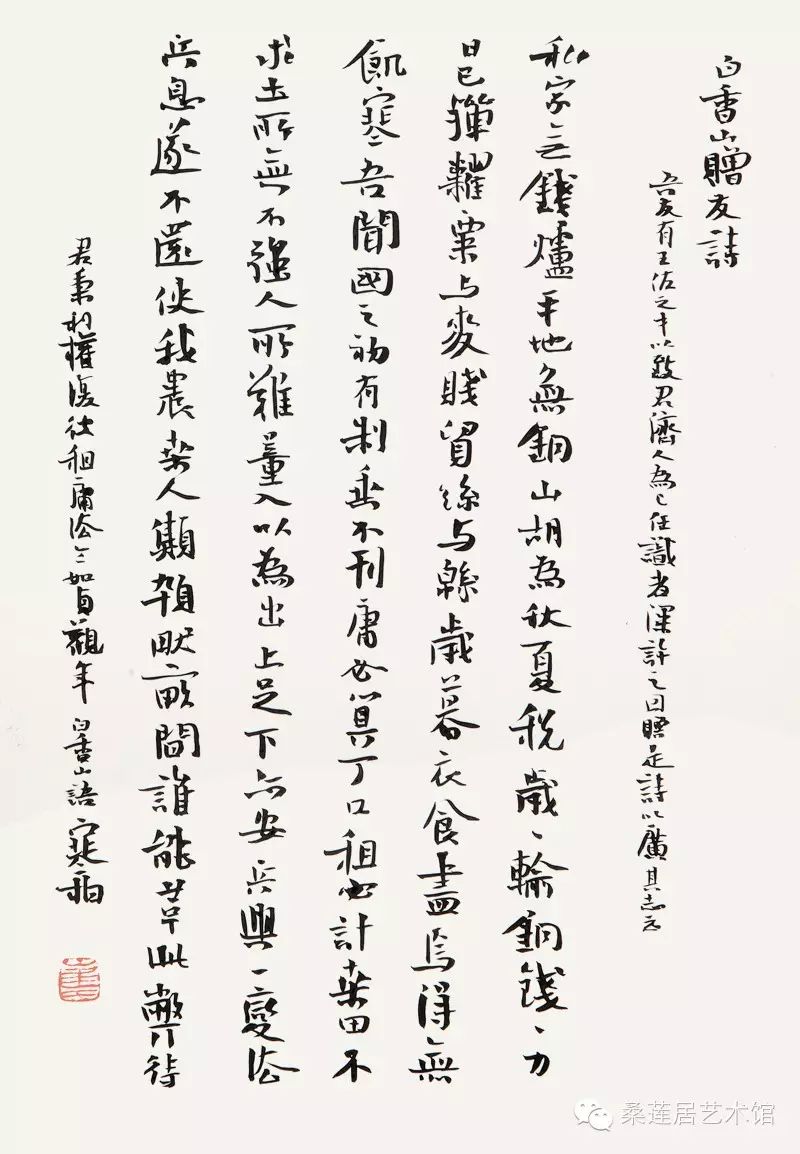 白香山贈友詩
吾友有王佐之才以致君濟人為己任識者深許之因贈是詩以廣其志云
私家无錢爐平地無銅山胡為秋夏稅歲、輸銅錢、力
日已殫糶粟与麥賤貿絲与綿歲暮衣食盡焉得無
飢寒吾聞國之初有制垂不刊庸必算丁口租必計桑田不
求土所無不強人所難量入以為出上足下亦安兵興一變法
兵息遂不還使我農桑人顦顇畎畝間誰能革此弊待
君秉利權復彼租庸法令如貞觀年 白香山語
桑莲居艺术馆